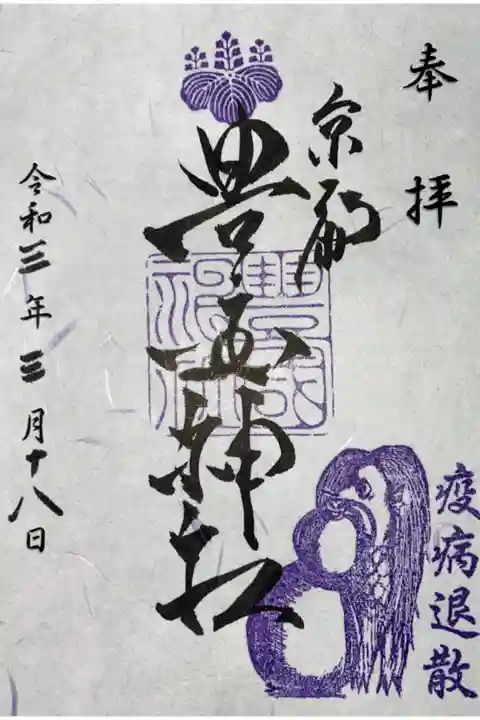 奉拝
京都
豊国神社
豊国神社
疫病退散
令和三年三月十八日